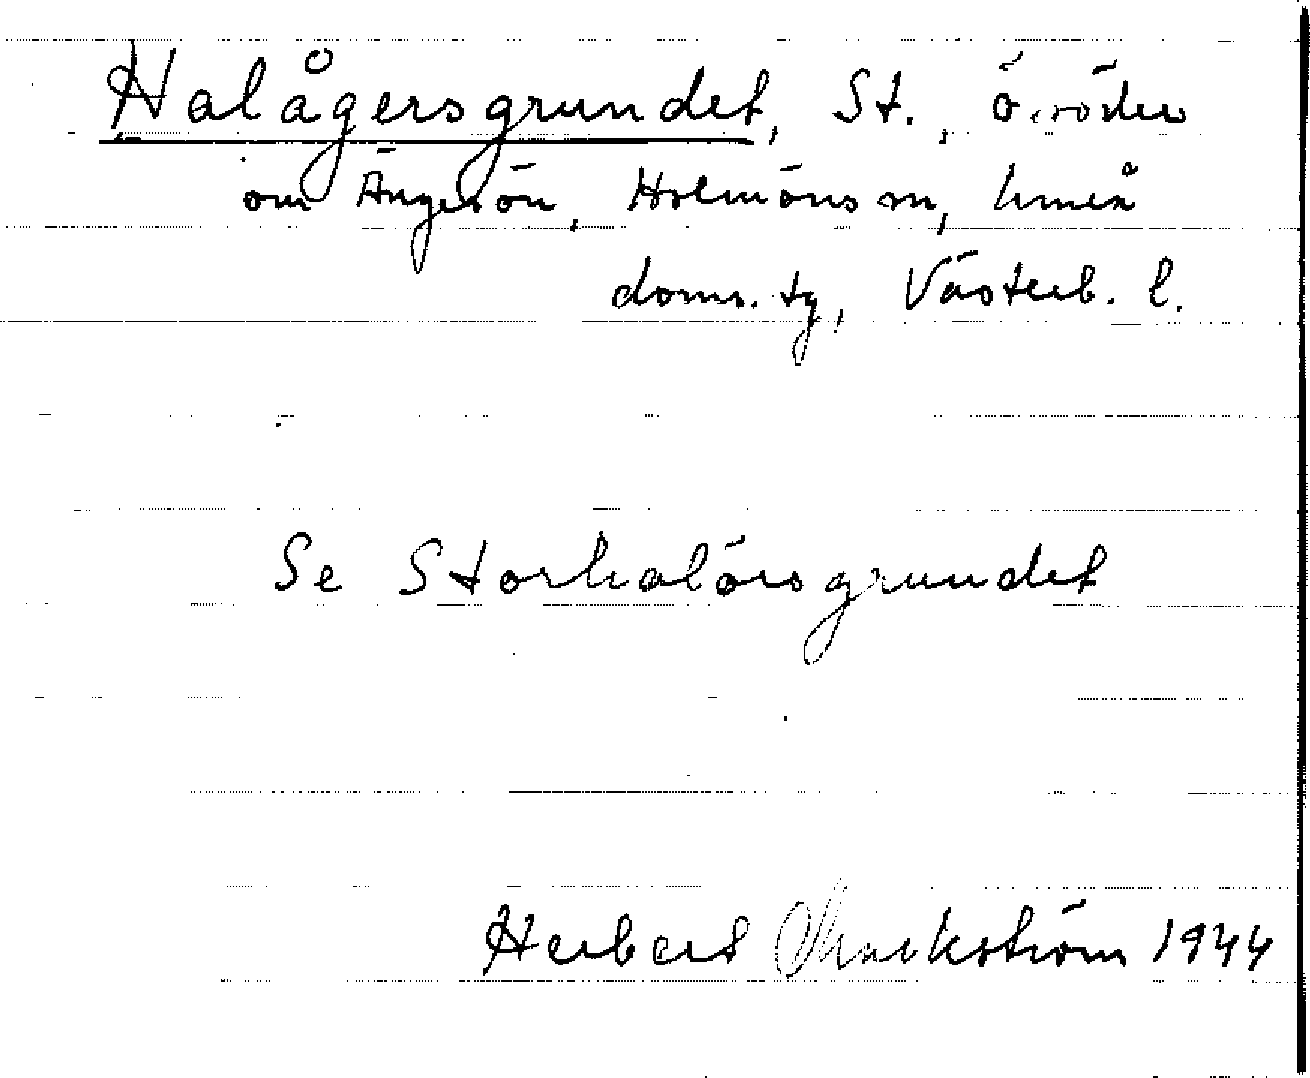 Halågersgrundet, St., ö. söder
om Ängesön, Holmöns sn, Umeå
doms. tg, Västerb. l.
Se Storhalörsgrundet
Herbert Markström 1944